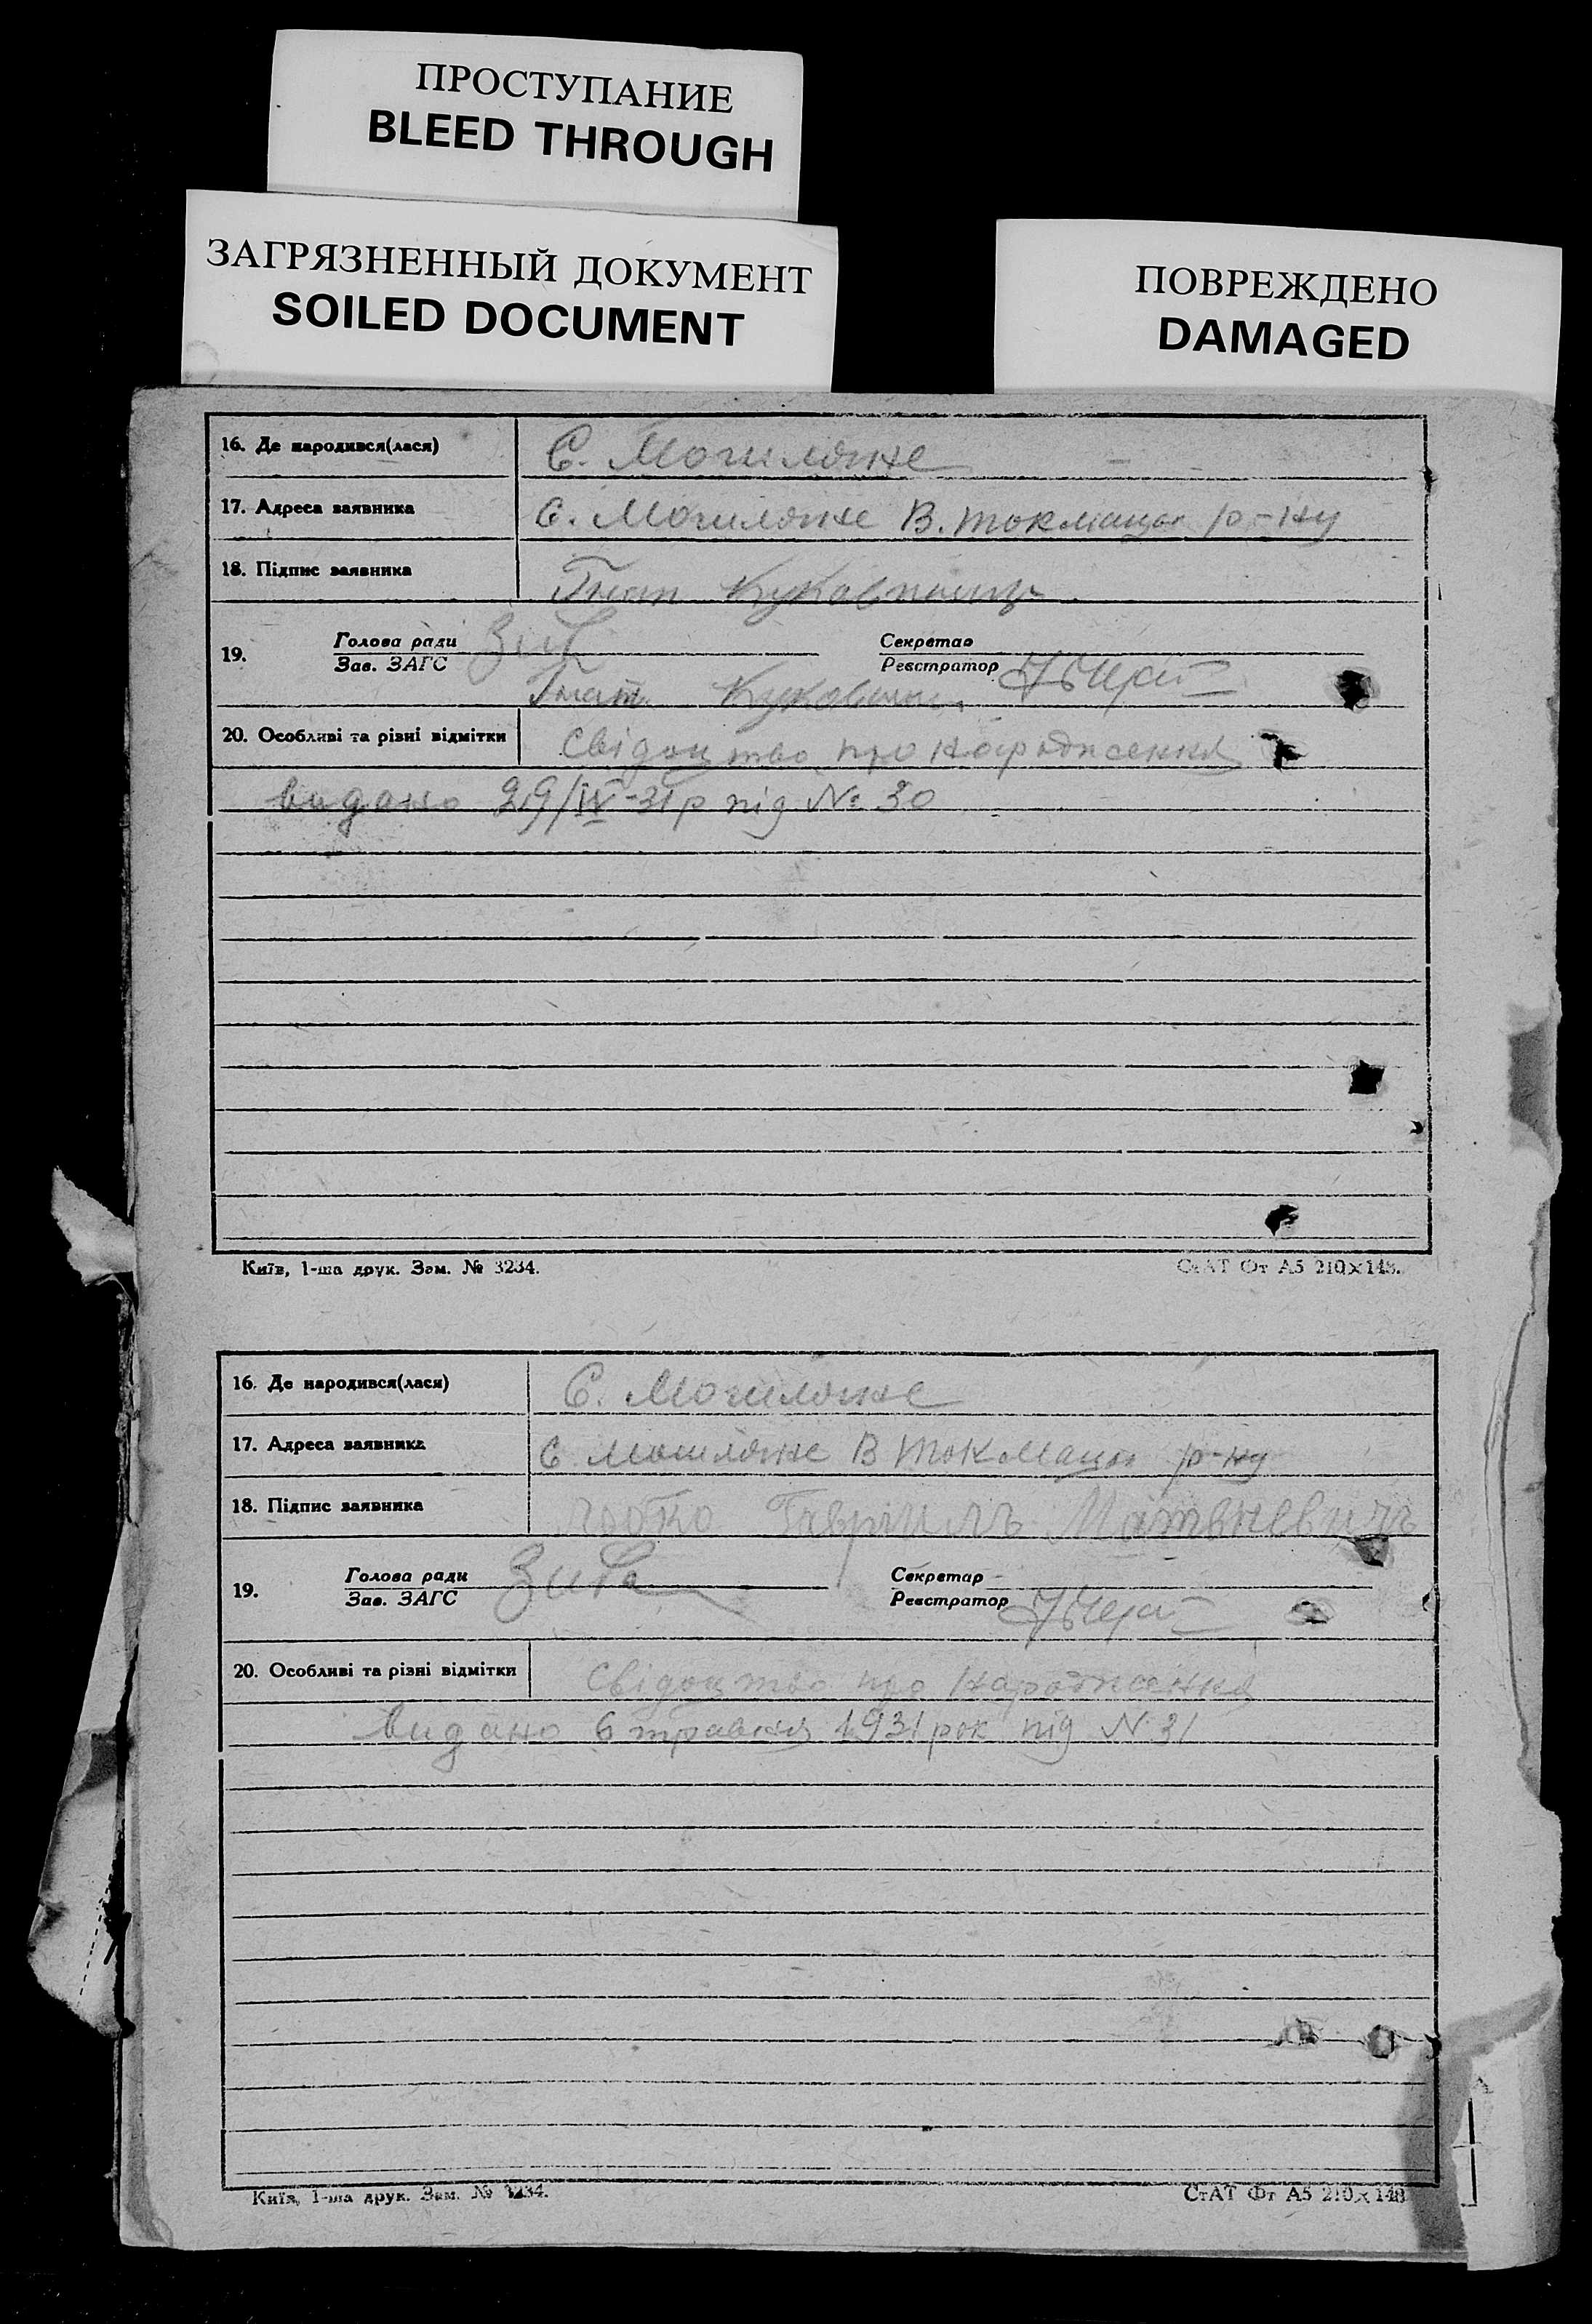 ПРОСТУПАНИЕ
BLEED THROUGH
ЗАГРЯЗНЕННЫЙ ДОКУМЕНТ
SOILED DOCUMENT
ПОВРЕЖДЕНО
DAMAGED
16. Де народився(лася) С. Могиляне
17. Адреса заявника С. Могиляне В. Токмацьк р-ну
18. Підпис заявника Гнат
19. Голова ради Секретар
Зав. ЗАГС Реєстратор
Гнат
20. Особливі та різні відмітки Свідоцтво про народження
видано 29/IV-31 р під № 30
Київ, 1-ша друк. Зам. № 3234. СтАТ Фт А5 210×148.
16. Де народився(лася) С. Могиляне
17. Адреса заявника С Могиляне В Токмацьк р-ну
18. Підпис заявника Гавриилъ Матвиевичъ
19. Голова ради Секретар
Зав. ЗАГС Реєстратор
20. Особливі та різні відмітки Свідоцтво про народження
видано 6 травня 1931 рок під N 31
Київ, 1-ша друк. Зам. № 3234. СтАТ Фт А5 210×148